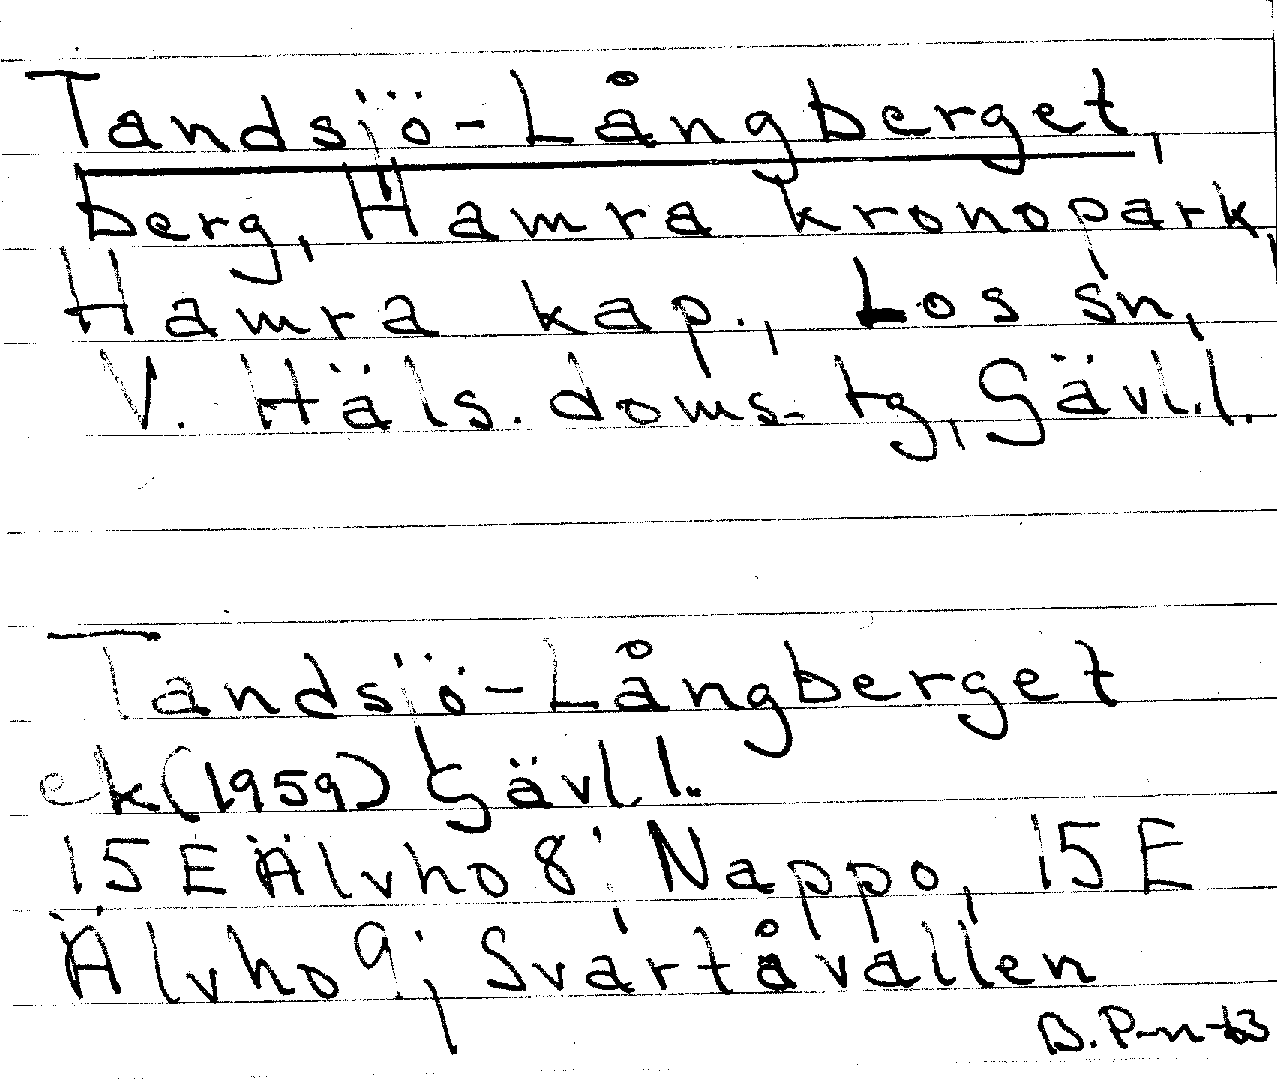 Tandsjö-Långberget,
berg, Hamra kronopark,
Hamra kap., Los sn,
V. Häls. doms. tg, Gävl.l.
Tandsjö-Långberget
ek (1959) Gävl.l.
15E Älvho 8; Nappo, 15E
Älvho 9; Svartåvallen
B. P-n -63